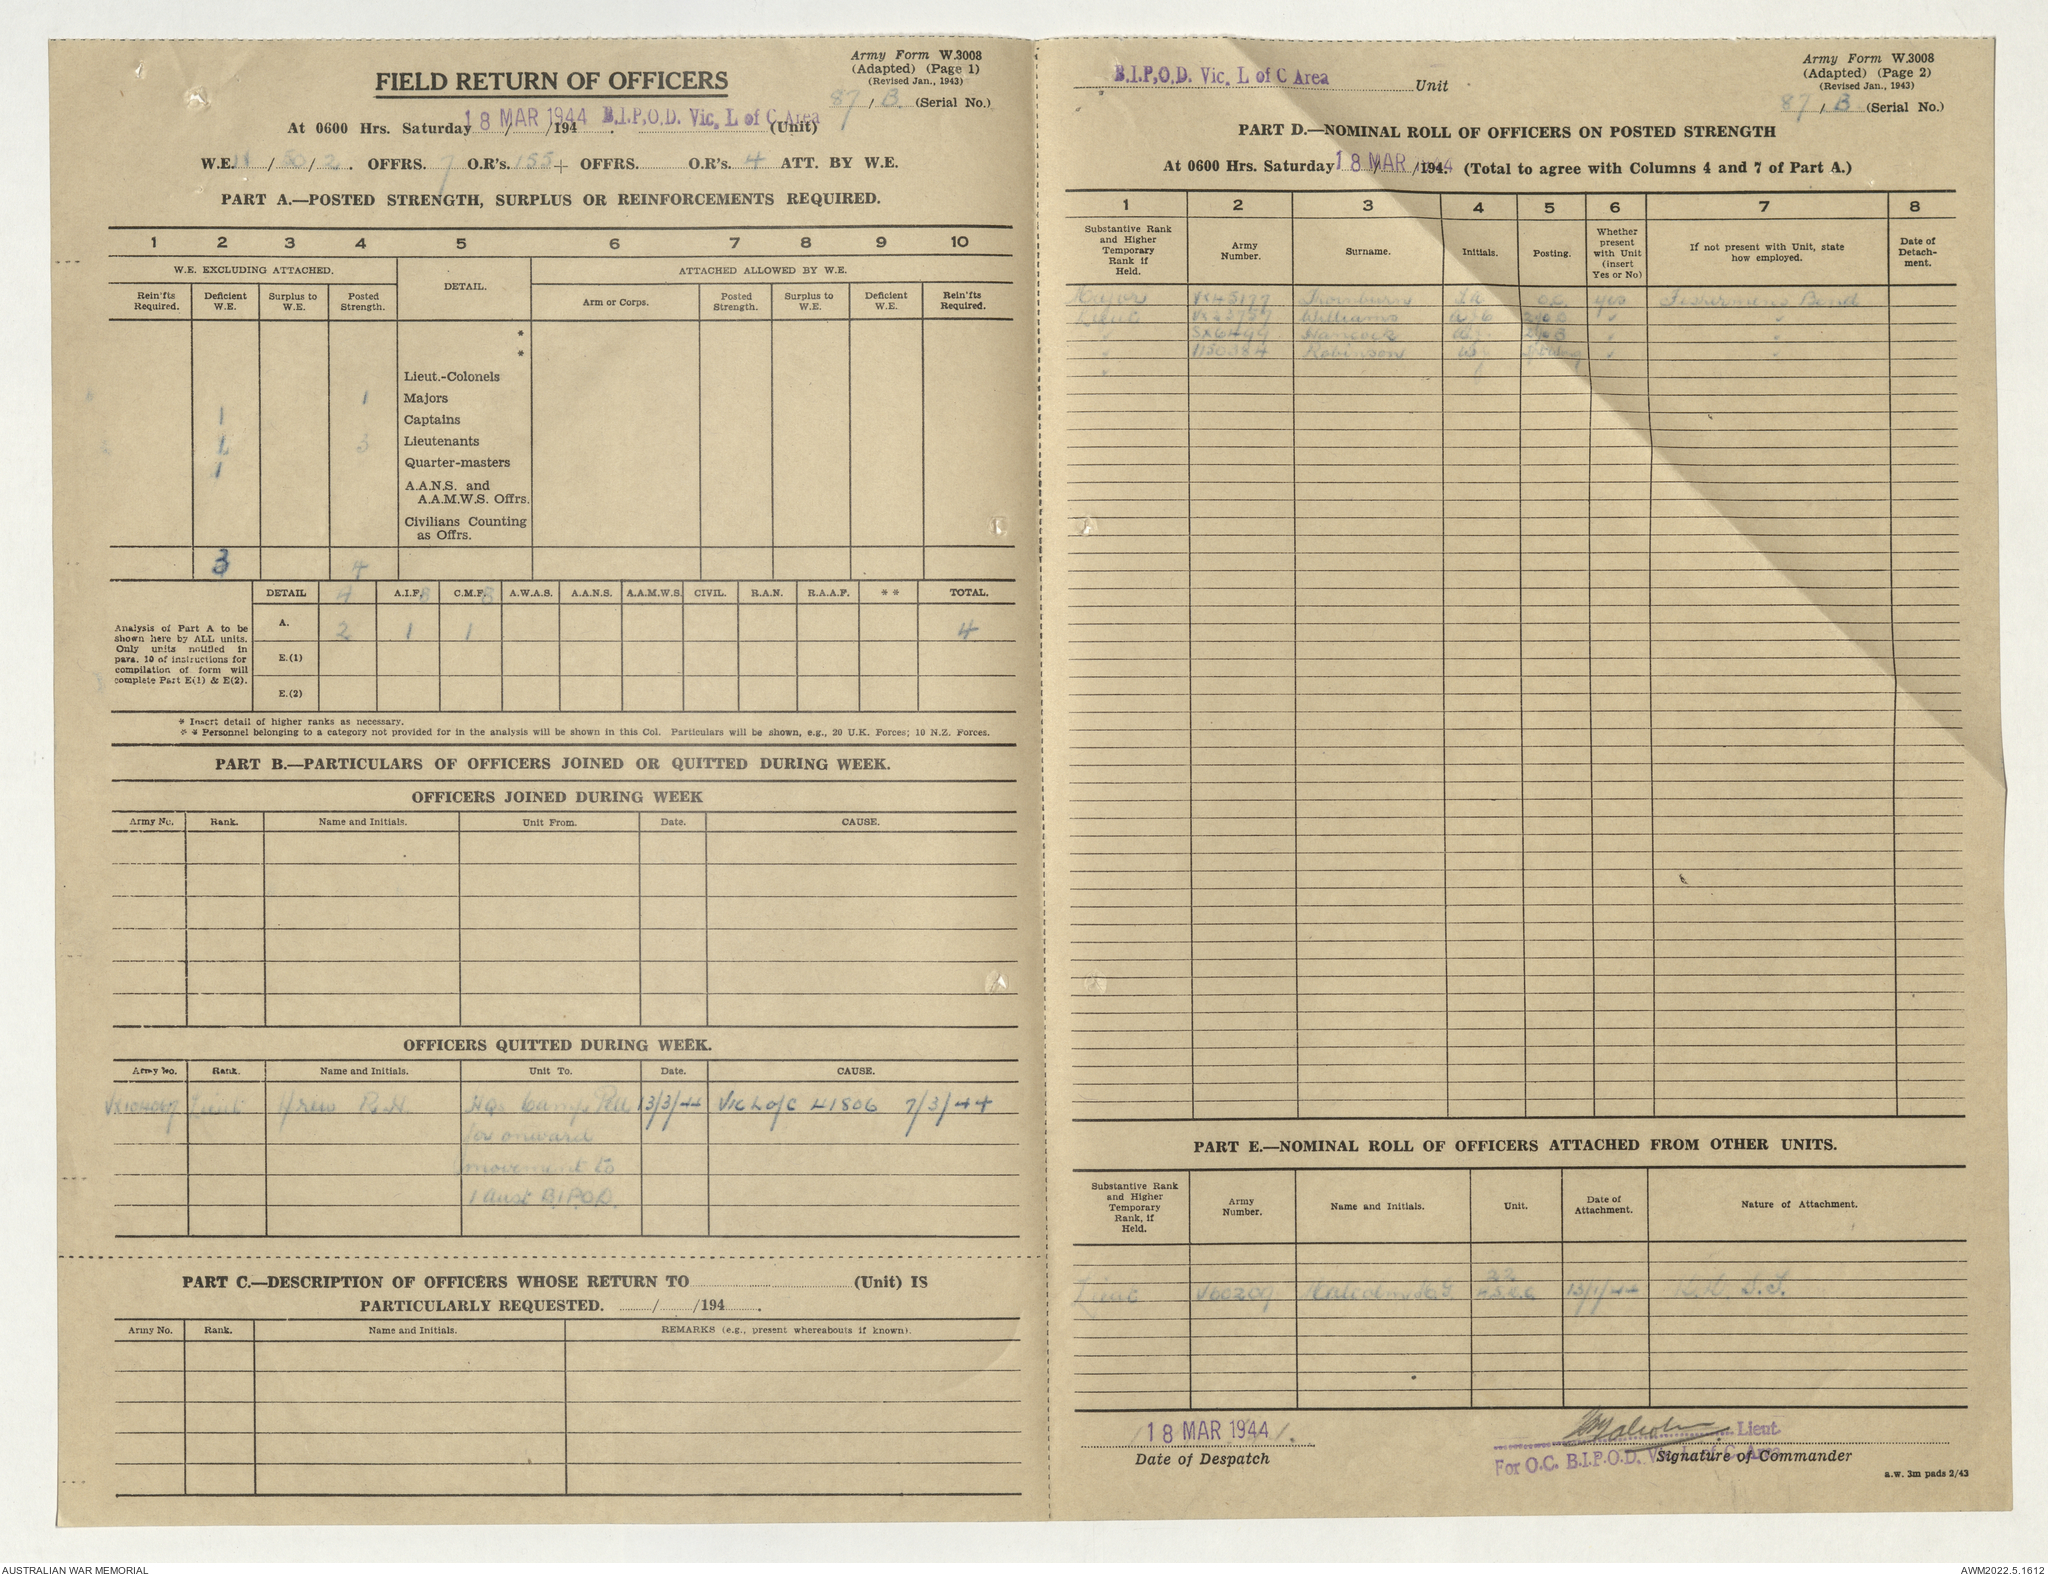 Army Form W.3008
(Adapted) (Page 1)
(Revised Jan., 1943)
FIELD RETURN OF OFFICERS
87 / B. (Serial No.)
At 0600 Hrs. Saturday 18 MAR 1944 /194 . B.I.P.O.D. Vic. L of C Area (Unit)
W.E. / 50 / 2 . OFFRS. 7 O.R's. 155 + OFFRS. O.R's. 4 ATT. BY W.E.
PART A.—POSTED STRENGTH, SURPLUS OR REINFORCEMENTS REQUIRED.
1 2 3 4 5 6 7 8 9 10
W.E. EXCLUDING ATTACHED. DETAIL. ATTACHED ALLOWED BY W.E.
Rein'fts Required. Deficient W.E. Surplus to W.E. Posted Strength. Arm or Corps. Posted Strength. Surplus to W.E. Deficient W.E. Rein'fts Required.
*
*
Lieut.-Colonels
1 Majors
1 Captains
1 3 Lieutenants
1 Quarter-masters
A.A.N.S. and
A.A.M.W.S. Offrs.
Civilians Counting
as Offrs.
3 4
DETAIL A.I.F. C.M.F. A.W.A.S. A.A.N.S. A.A.M.W.S. CIVIL. R.A.N. R.A.A.F. * * TOTAL.
Analysis of Part A to be
shown here by ALL units.
Only units notified in
para. 10 of instructions for
compilation of form will
complete Part E(1) & E(2).
A. 2 1 1 4
E.(1)
E.(2)
* Insert detail of higher ranks as necessary.
* * Personnel belonging to a category not provided for in the analysis will be shown in this Col. Particulars will be shown, e.g., 20 U.K. Forces; 10 N.Z. Forces.
PART B.—PARTICULARS OF OFFICERS JOINED OR QUITTED DURING WEEK.
OFFICERS JOINED DURING WEEK
Army No. Rank. Name and Initials. Unit From. Date. CAUSE.
OFFICERS QUITTED DURING WEEK.
Army No. Rank. Name and Initials. Unit To. Date. CAUSE.
Lieut R.H. HQ. Camp Pell 13/3/44 Vic L of C 41806 7/3/44
for onward
movement to
1 Aust B.I.P.O.D.
PART C.—DESCRIPTION OF OFFICERS WHOSE RETURN TO (Unit) IS
PARTICULARLY REQUESTED. / /194 .
Army No. Rank. Name and Initials. REMARKS (e.g., present whereabouts if known).
Army Form W.3008
(Adapted) (Page 2)
(Revised Jan., 1943)
B.I.P.O.D. Vic. L of C Area Unit
87 / B (Serial No.)
PART D.—NOMINAL ROLL OF OFFICERS ON POSTED STRENGTH
At 0600 Hrs. Saturday 18 MAR 1944 /194. (Total to agree with Columns 4 and 7 of Part A.)
1 2 3 4 5 6 7 8
Substantive Rank and Higher Temporary Rank if Held. Army Number. Surname. Initials. Posting. Whether present with Unit (insert Yes or No) If not present with Unit, state how employed. Date of Detachment.
Major VX45177 Thornburn O.C. yes Fishermens Bend
Lieut VX23757 Williams " "
" SX6499 Hancock " "
" Robinson " "
"
PART E.—NOMINAL ROLL OF OFFICERS ATTACHED FROM OTHER UNITS.
Substantive Rank and Higher Temporary Rank, if Held. Army Number. Name and Initials. Unit. Date of Attachment. Nature of Attachment.
Lieut V60209 Malcolm 22 13/1/44
18 MAR 1944
Date of Despatch
Malcolm Lieut.
For O.C. B.I.P.O.D. Vic. L of C Area
Signature of Commander
a.w. 3m pads 2/43
AUSTRALIAN WAR MEMORIAL AWM2022.5.1612